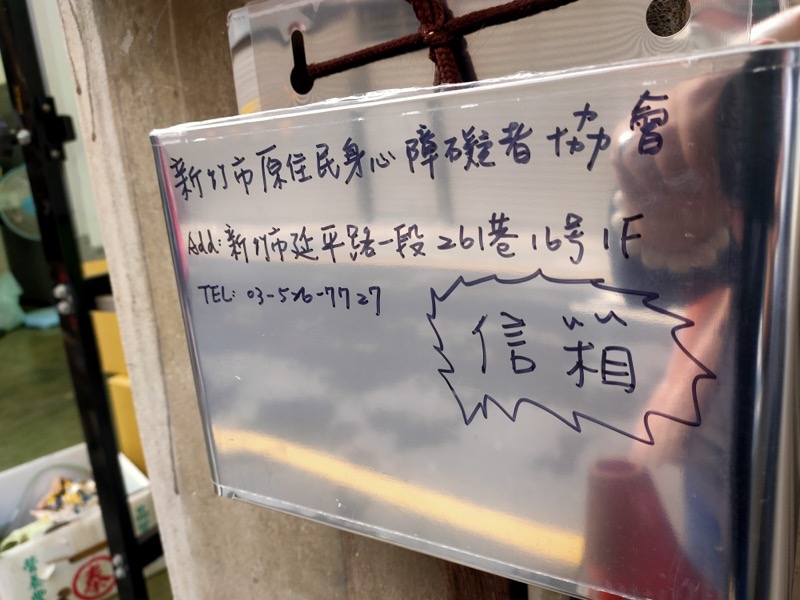 新竹市原住民身心障礙者協會
Add: 新竹市延平路一段261巷16号1F
TEL: 03-526-7727
信箱